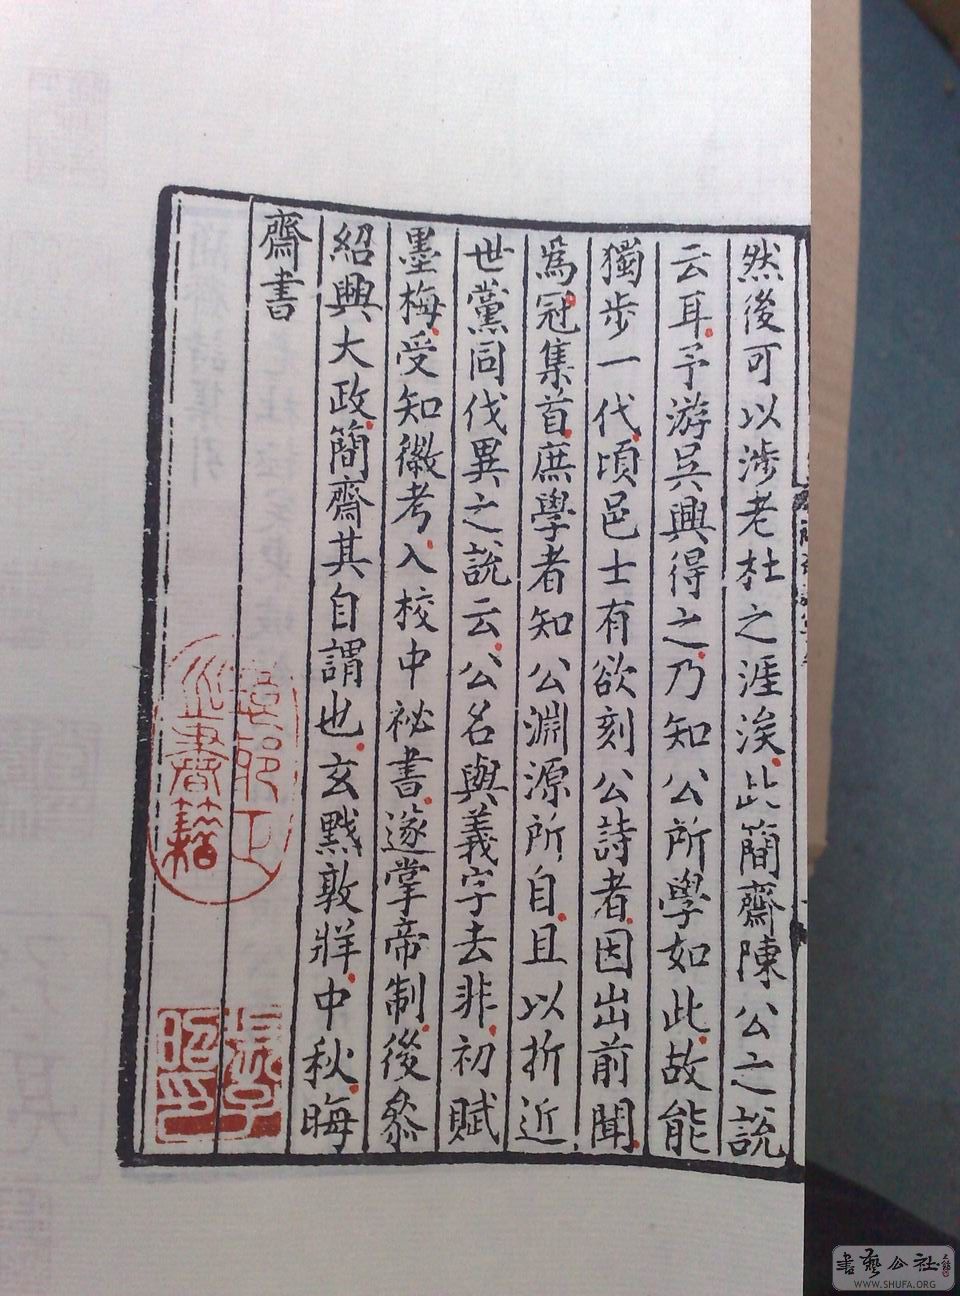 然後可以涉老杜之涯涘此簡齋陳公之說
云耳予游吳興得之乃知公所學如此故能
獨步一代頃邑士有欲刻公詩者因出前聞
爲冠集首庶學者知公淵源所自且以折近
世黨同伐異之說云公名與義字去非初賦
墨梅受知徽考入校中祕書遂掌帝制後叅
紹興大政簡齋其自謂也玄黓敦牂中秋晦
齋書
書藝公社
WWW.SHUFA.ORG